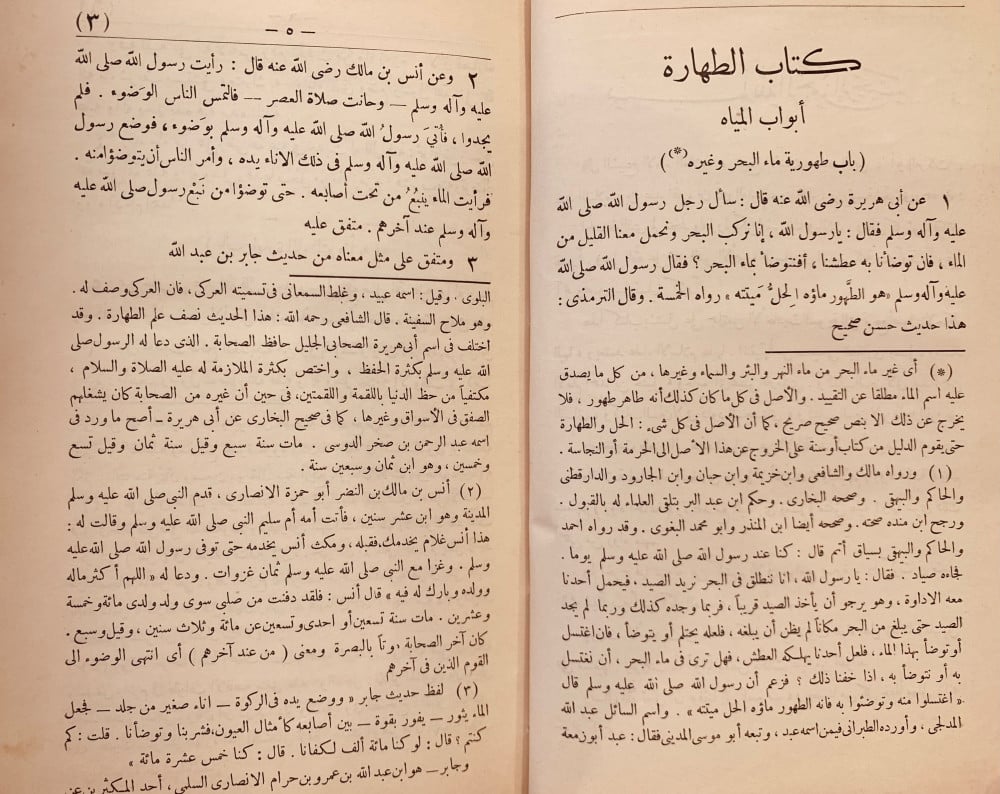 كتاب الطهارة
أبواب المياه
( باب طهورية ماء البحر وغيره(*) )
١ عن أبى هريرة رضى الله عنه قال : سأل رجل رسول الله صلى الله
عليه وآله وسلم فقال : يارسول الله ، إنا نركب البحر ونحمل معنا القليل من
الماء ، فان توضأنا به عطشنا ، أفنتوضأ بماء البحر ؟ فقال رسول الله صلى الله
عليه وآله وسلم «هو الطَّهور ماؤه الحِلُّ مَيتته » رواه الخمسة . وقال الترمذى :
هذا حديث حسن صحيح
(*) أى غير ماء البحر من ماء النهر والبئر والسماء وغيرها ، من كل ما يصدق
عليه اسم الماء مطلقا عن التقييد . والأصل فى كل ما كان كذلك أنه طاهر طهور ، فلا
يخرج عن ذلك الا بنص صحيح صريح ، كما أن الأصل فى كل شىء : الحل والطهارة
حتى يقوم الدليل من كتاب أو سنة على الخروج عن هذا الأصل الى الحرمة أو النجاسة .
(١) ورواه مالك والشافعى وابن خزيمة وابن حبان وابن الجارود والدارقطنى
والحاكم والبيهقى . وصححه البخارى . وحكم ابن عبد البر بتلقى العلماء له بالقبول .
ورجح ابن منده صحته . وصححه أيضا ابن المنذر وابو محمد البغوى . وقد رواه احمد
والحاكم والبيهقى بسياق أتم قال : كنا عند رسول الله صلى الله عليه وسلم يوما .
فجاءه صياد . فقال : يارسول الله ، انا ننطلق فى البحر نريد الصيد ، فيحمل أحدنا
معه الاداوة ، وهو يرجو أن يأخذ الصيد قريباً ، فربما وجده كذلك وربما لم يجد
الصيد حتى يبلغ من البحر مكاناً لم يظن أن يبلغه ، فلعله يحتلم أو يتوضأ ، فان اغتسل
أو توضأ بهذا الماء . فلعل أحدنا يهلكه العطش ، فهل ترى فى ماء البحر ، أن نغتسل
به أو نتوضأ به ، اذا خفنا ذلك ؟ فزعم أن رسول الله صلى الله عليه وسلم قال
« اغتسلوا منه وتوضئوا به فانه الطهور ماؤه الحل ميتته » . واسم السائل عبد الله
المدلجى ، وأورده الطبرانى فيمن اسمه عبد ، وتبعه أبو موسى المدينى فقال : عبد أبو زمعة
— ٥ —
(٣)
٢ وعن أنس بن مالك رضى الله عنه قال : رأيت رسول الله صلى الله
عليه وآله وسلم — وحانت صلاة العصر — فالتمس الناس الوَضوء . فلم
يجدوا ، فأُتِىَ رسولُ الله صلى الله عليه وآله وسلم بوَضوء ، فوضع رسول
الله صلى الله عليه وآله وسلم فى ذلك الاناء يده ، وأمر الناس أن يتوضؤا منه .
فرأيت الماء ينبُعُ من تحت أصابعه . حتى توضؤا من نَبْع رسول صلى الله عليه
وآله وسلم عند آخرهم . متفق عليه
٣ ومتفق على مثل معناه من حديث جابر بن عبد الله
البلوى . وقيل : اسمه عبيد ، وغلط السمعانى فى تسميته العركى ، فان العركى وصف له .
وهو ملاح السفينة . قال الشافعى رحمه الله : هذا الحديث نصف علم الطهارة . وقد
اختلف فى اسم أبى هريرة الصحابى الجليل حافظ الصحابة . الذى دعا له الرسول صلى
الله عليه وسلم بكثرة الحفظ ، واختص بكثرة الملازمة له عليه الصلاة والسلام ،
مكتفياً من حظ الدنيا باللقمة واللقمتين ، فى حين أن غيره من الصحابة كان يشغلهم
الصفق فى الأسواق وغيرها ، كما فى صحيح البخارى عن أبى هريرة — أصح ما ورد فى
اسمه عبد الرحمن بن صخر الدوسى . مات سنة سبع وقيل سنة ثمان وقيل تسع
وخمسين ، وهو ابن ثمان وسبعين سنة .
(٢) أنس بن مالك بن النضر أبو حمزة الانصارى ، قدم النبى صلى الله عليه وسلم
المدينة وهو ابن عشر سنين ، فأتت أمه أم سليم النبى صلى الله عليه وسلم وقالت له :
هذا أنس غلام يخدمك ، فقبله ، ومكث أنس يخدمه حتى توفى رسول الله صلى الله عليه
وسلم . وغزا مع النبى صلى الله عليه وسلم ثمان غزوات . ودعا له « اللهم أكثر ماله
وولده وبارك له فيه » قال أنس : فلقد دفنت من صلبى سوى ولد ولدى مائة وخمسة
وعشرين . مات سنة تسعين أو احدى وتسعين عن مائة وثلاث سنين ، وقيل وسبع .
كان آخر الصحابة موتاً بالبصرة ومعنى ( من عند آخرهم ) أى انتهى الوضوء الى
القوم الذين فى آخرهم
(٣) لفظ حديث جابر « ووضع يده فى الركوة — اناء صغير من جلد — فجعل
الماء يثور — يفور بقوة — بين أصابعه كأمثال العيون ، فشربنا وتوضأنا . قلت : كم
كنتم ؟ قال : لو كنا مائة ألف لكفانا . قال : كنا خمس عشرة مائة »
وجابر — هو ابن عبد الله بن عمرو بن حرام الانصارى السلمى ، أحد المكثرين عن